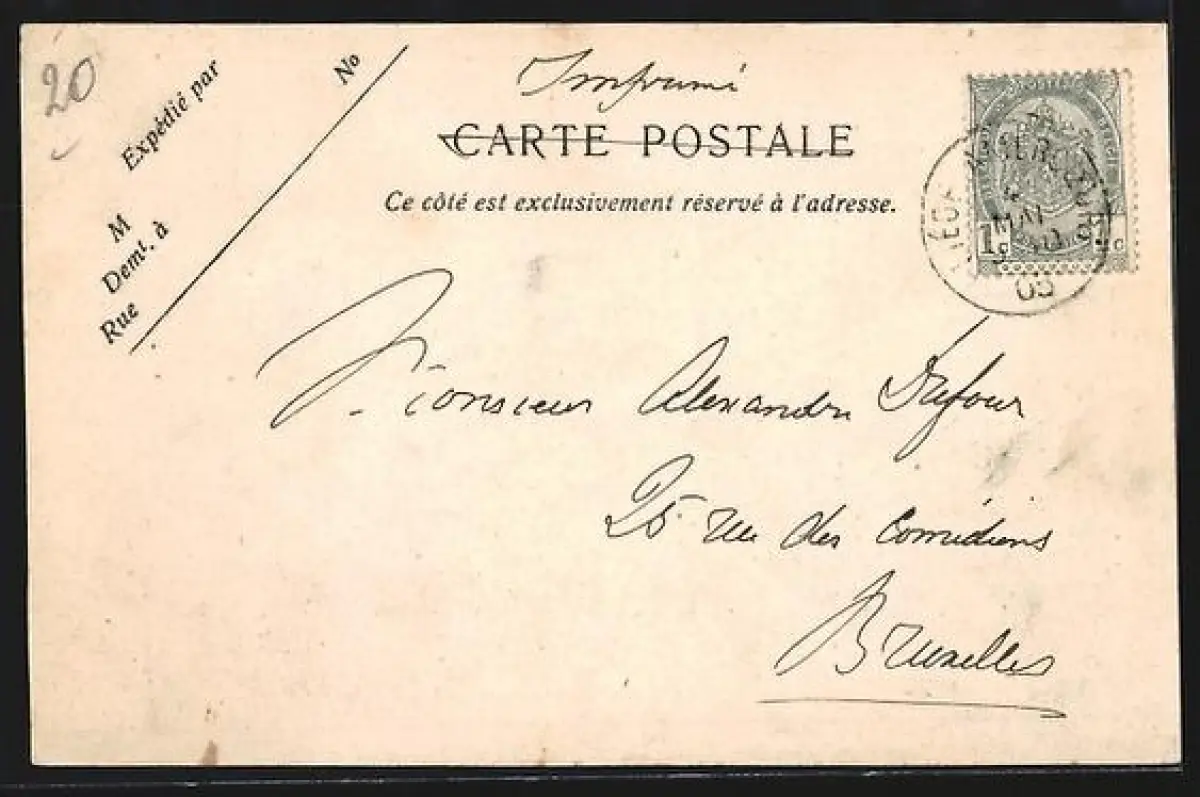 20
Expédié par
No
M
Demt. à
Rue
Imprimé
CARTE POSTALE
Ce côté est exclusivement réservé à l'adresse.
1c
MAI
05
Monsieur Alexandre Dufour
25 rue des Comédiens
Bruxelles